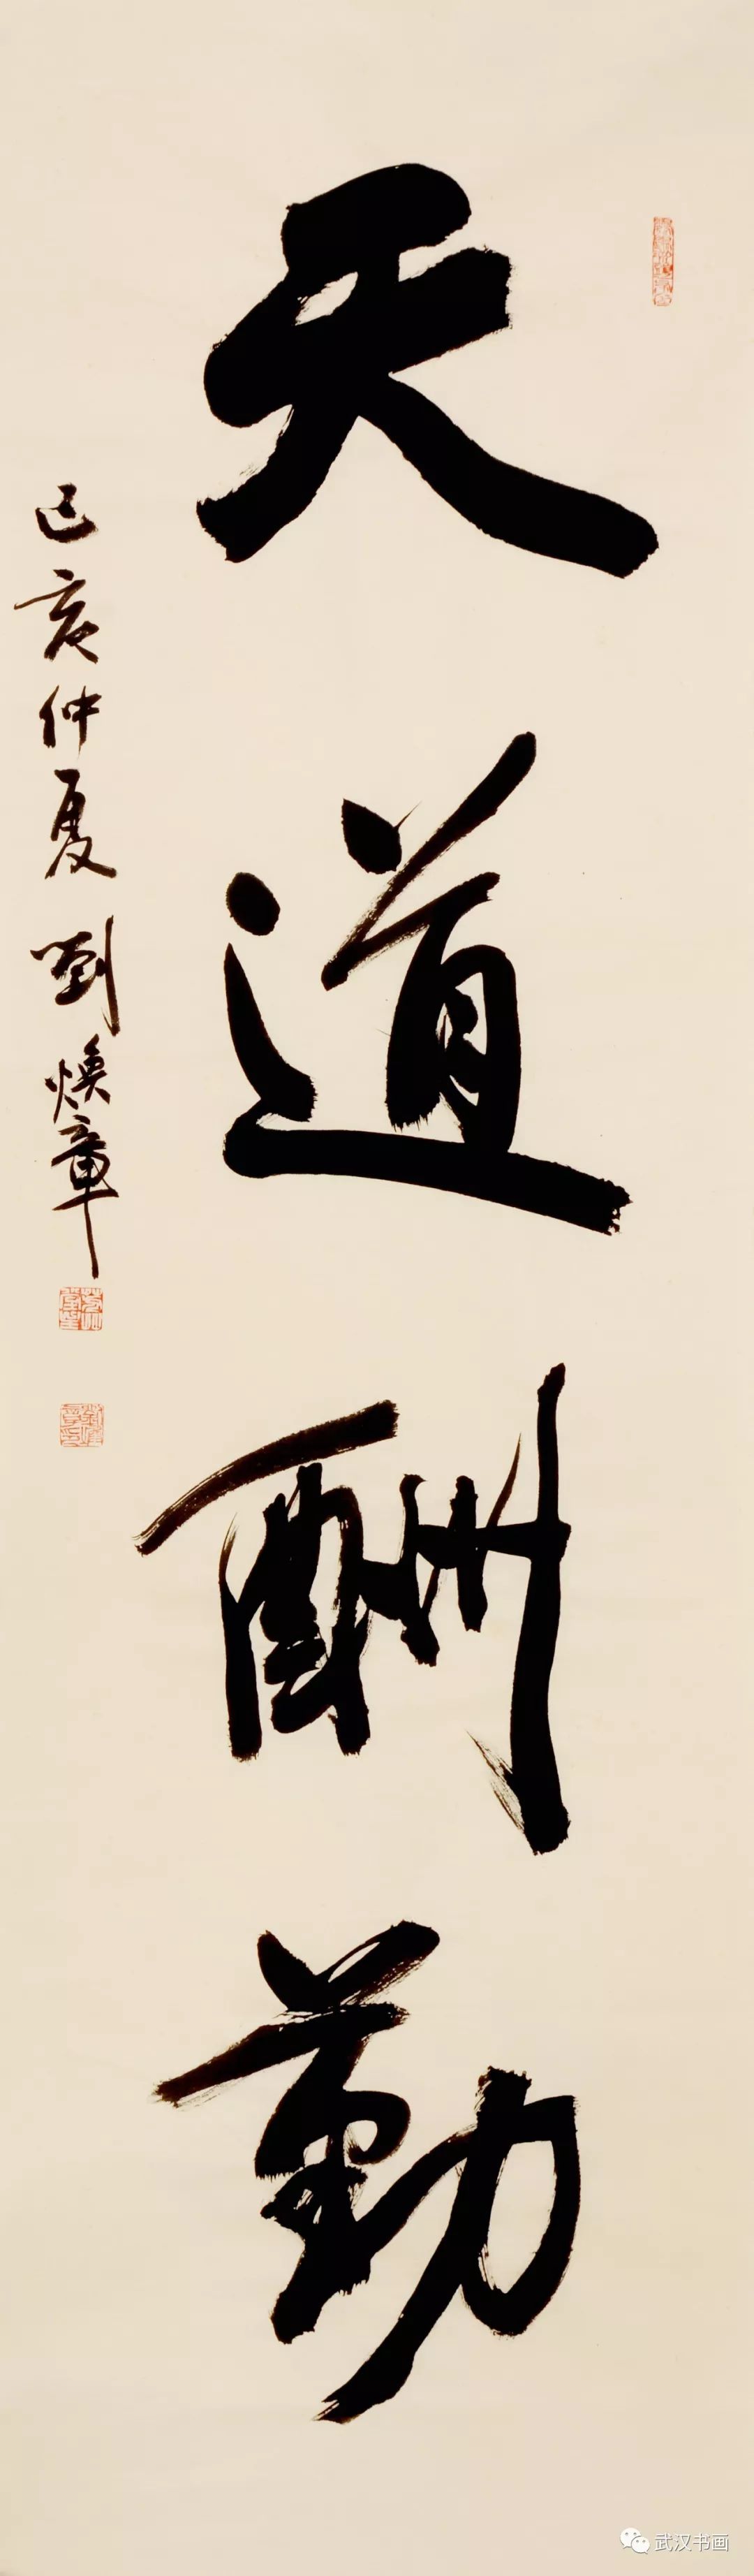 天道酬勤
己亥仲夏劉煥章
武汉书画